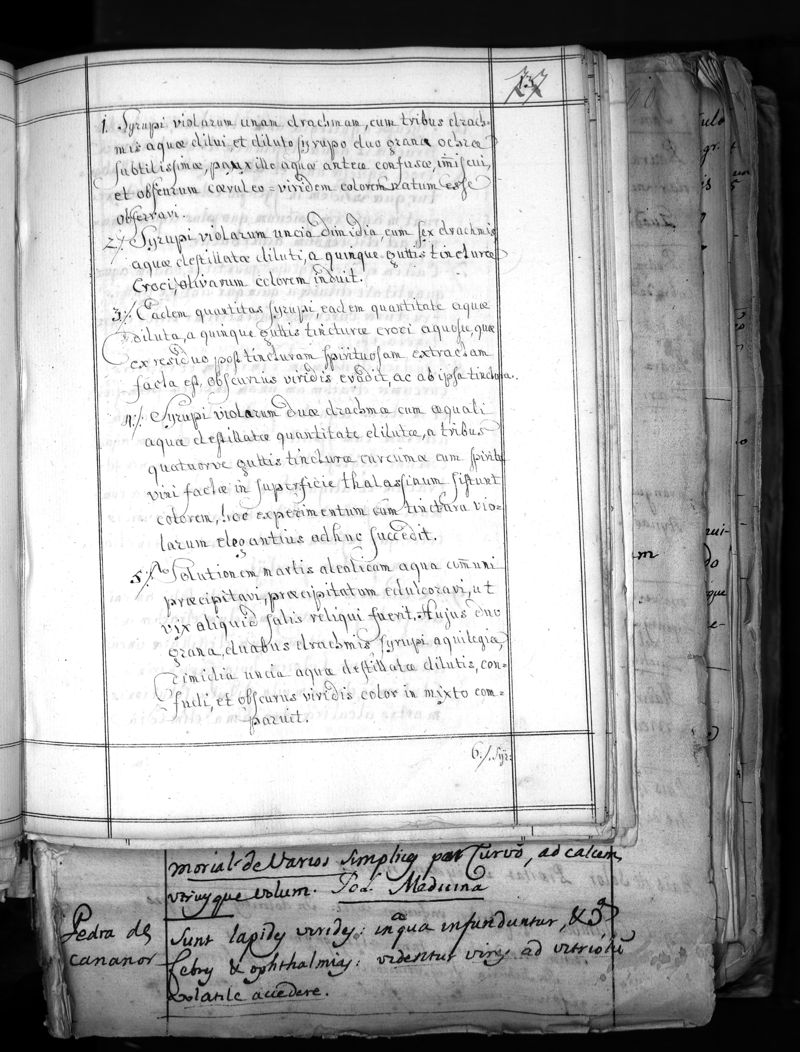 137
1. Syrupi violarum unam drachmam, cum tribus drach-
mis aquæ dilui et diluto syrupo duo grana ochræ
subtilissimæ, pauxillo aquæ anteæ confusæ, im̄iscui,
et obscurum cæruleo=viridem colorem natum esse
observavi.
2/. Syrupi violarum uncia dimidia cum sex drachmis
aquæ destillatæ diluti, a quinque guttis tincturæ
Croci, olivarum colorem induit.
3/. Eadem quantitas syrupi, eadem quantitate aquæ
diluta, a quinque guttis tincturæ croci aquosæ, quæ
ex residuo post tincturam spirituosam extractam
facta est, obscurius viridis evadit, ac ab ipsa tinctura.
4/. Syrupi violarum duæ drachmæ cum æquali
aquæ destillatæ quantitate dilutæ, a tribus
quatuorve guttis tincturæ curcumæ cum spiritu
vini factæ in superficie thalassinum sistunt
colorem, hoc experimentum cum tinctura vio-
larum elegantius adhuc succedit.
5/. Solutionem martis alcalicam aqua com̄uni
præcipitavi, præcipitatum edulcoravi, ut
vix aliquid salis reliqui fuerit. Hujus duo
grana, duabus drachmis syrupi aquilegiæ,
Dimidia uncia aquæ destillatæ dilutis, con-
fudi, et obscurus viridis color in mixto com-
paruit.
6/. Syr:
morial. de Varios simplices por Curvō, ad calcem
utriusque volum. Medicina
Pedra de
cananor
Sunt lapides virides: in aqua infunduntur, &
febres & ophthalmias: videntur vires ad vitriolū
volatile accedere.